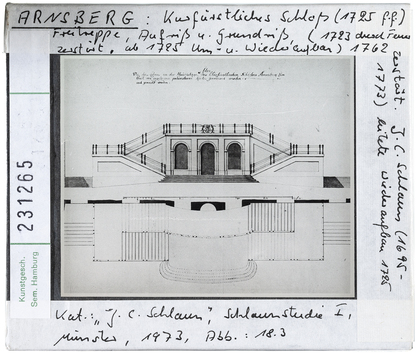 ARNSBERG : Kurfürstliches Schloß (1725 ff)
Freitreppe, Aufriß u. Grundriß, (1723 durch Feuer
zerstört, ab 1725 Um- u. Wiederaufbau) 1762
zerstört J. C. Schlaun (1695-
1773) leitete Wiederaufbau 1725
231265
Kunstgesch.
Sem. Hamburg
Kat.: "J. C. Schlaun", Schlaunstudie I,
Münster, 1973, Abb.: 18.3